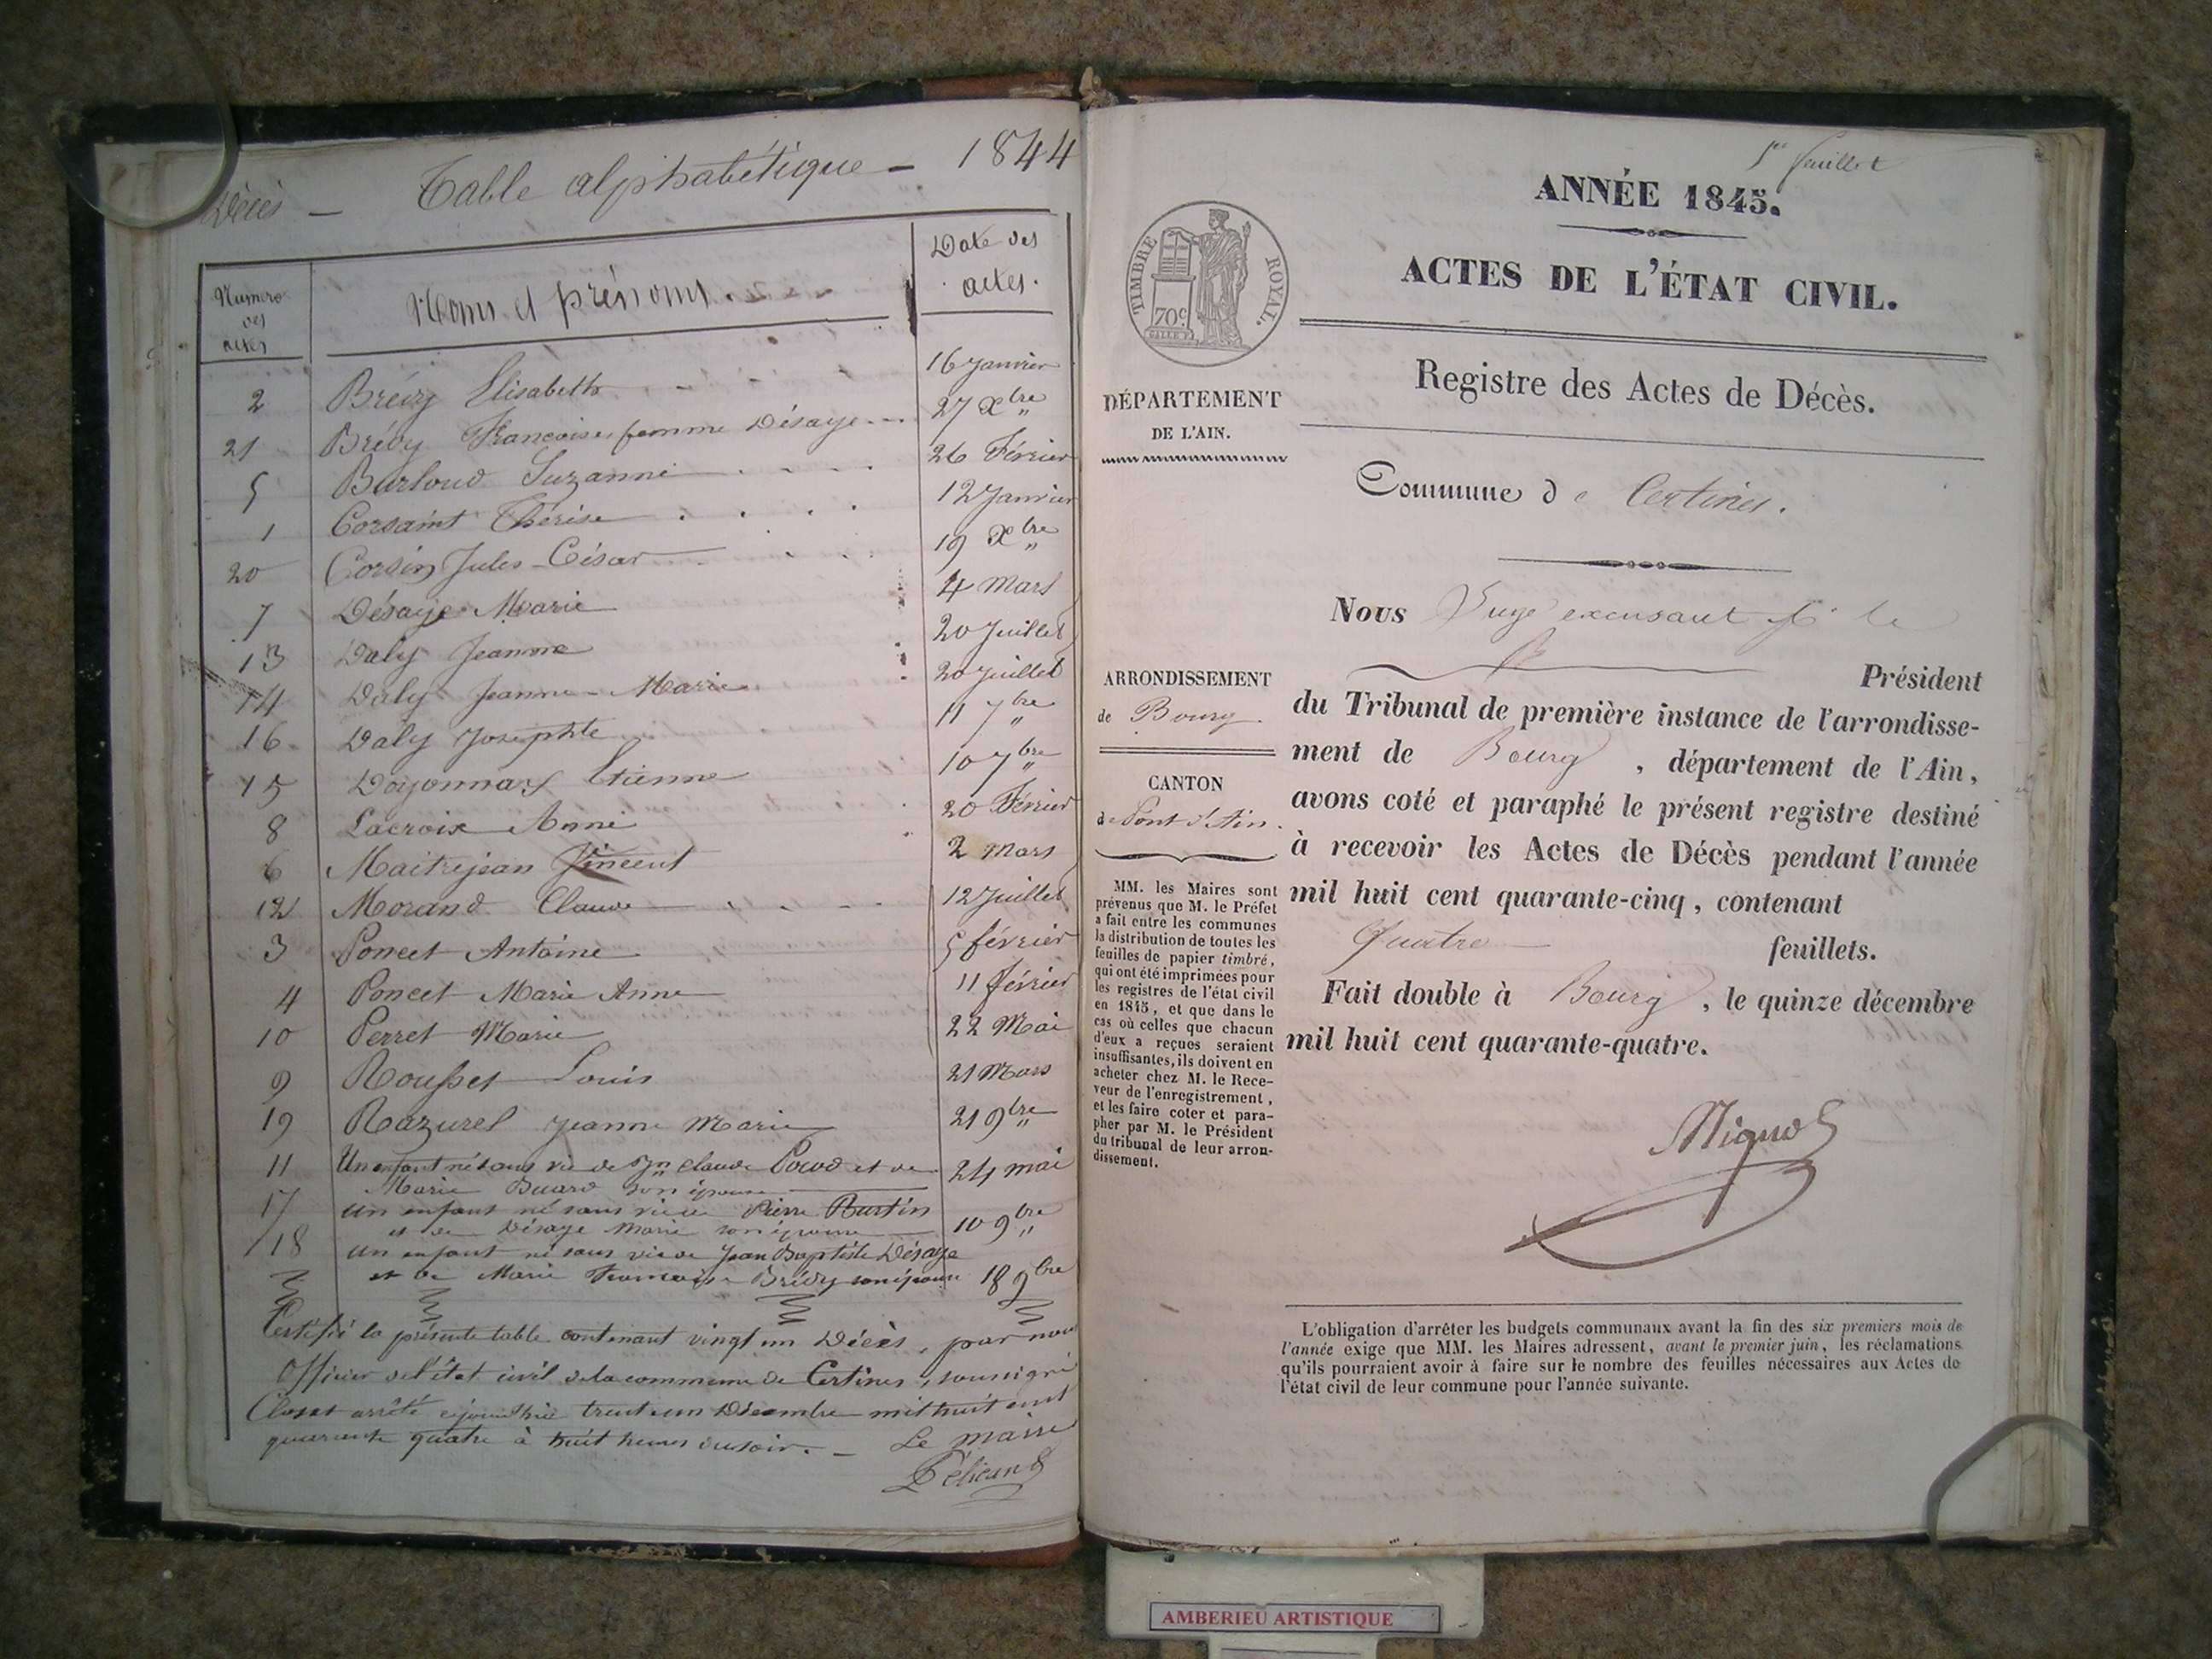 Décès — Table alphabétique — 1844
Numero des actes
Noms et prénoms.
Date des actes.
2 Brévy Elisabeth 16 Janvier
21 Brévy Françoise, femme Désaye 27 Xbre
5 Burloud Suzanne 26 Février
1 Corsaint Thérèse 12 Janvier
20 Corsin Jules-César 19 Xbre
7 Désaye Marie 4 Mars
13 Daly Jeanne 20 Juillet
14 Daly Jeanne-Marie 20 Juillet
16 Daly Josephte 11 7bre
15 Doyonnax Etienne 10 7bre
8 Lacroix Anne 20 Février
6 Maitrejean Vincent 2 Mars
12 Morand Claude 12 Juillet
3 Poncet Antoine 5 février
4 Poncet Marie Anne 11 février
10 Perret Marie 22 Mai
9 Rousset Louis 21 Mars
19 Razurel Jeanne Marie 21 9bre
11 Un enfant né sans vie de Jn Claude et de 24 mai
Marie Buard son épouse
17 Un enfant né sans vie de Pierre Rustin
et de Désaye Marie son épouse 10 9bre
18 Un enfant né sans vie de Jean Baptiste Désaye
et de Marie Françoise Brévy son épouse 18 9bre
Certifié la présente table contenant vingt un Décès, par nous
Officier de l'état civil de la commune de Certines, soussigné
Clos et arrêté cejourd'hui trente un Décembre mil huit cent
quarante quatre à huit heures du soir. — Le maire
Pélicand
1er feuillet
ANNÉE 1845.
ACTES DE L'ÉTAT CIVIL.
TIMBRE ROYAL.
70c
DÉPARTEMENT
DE L'AIN.
Registre des Actes de Décès.
Commune de Certines.
Nous Juge excusant Mr le
Président
du Tribunal de première instance de l'arrondisse-
ment de Bourg, département de l'Ain,
avons coté et paraphé le présent registre destiné
à recevoir les Actes de Décès pendant l'année
mil huit cent quarante-cinq, contenant
Quatre feuillets.
Fait double à Bourg, le quinze décembre
mil huit cent quarante-quatre.
ARRONDISSEMENT
de Bourg.
CANTON
de Pont d'Ain.
MM. les Maires sont
prévenus que M. le Préfet
a fait entre les communes
la distribution de toutes les
feuilles de papier timbré,
qui ont été imprimées pour
les registres de l'état civil
en 1845, et que dans le
cas où celles que chacun
d'eux a reçues seraient
insuffisantes, ils doivent en
acheter chez M. le Rece-
veur de l'enregistrement,
et les faire coter et para-
pher par M. le Président
du tribunal de leur arron-
dissement.
L'obligation d'arrêter les budgets communaux avant la fin des six premiers mois de
l'année exige que MM. les Maires adressent, avant le premier juin, les réclamations
qu'ils pourraient avoir à faire sur le nombre des feuilles nécessaires aux Actes de
l'état civil de leur commune pour l'année suivante.
AMBERIEU ARTISTIQUE